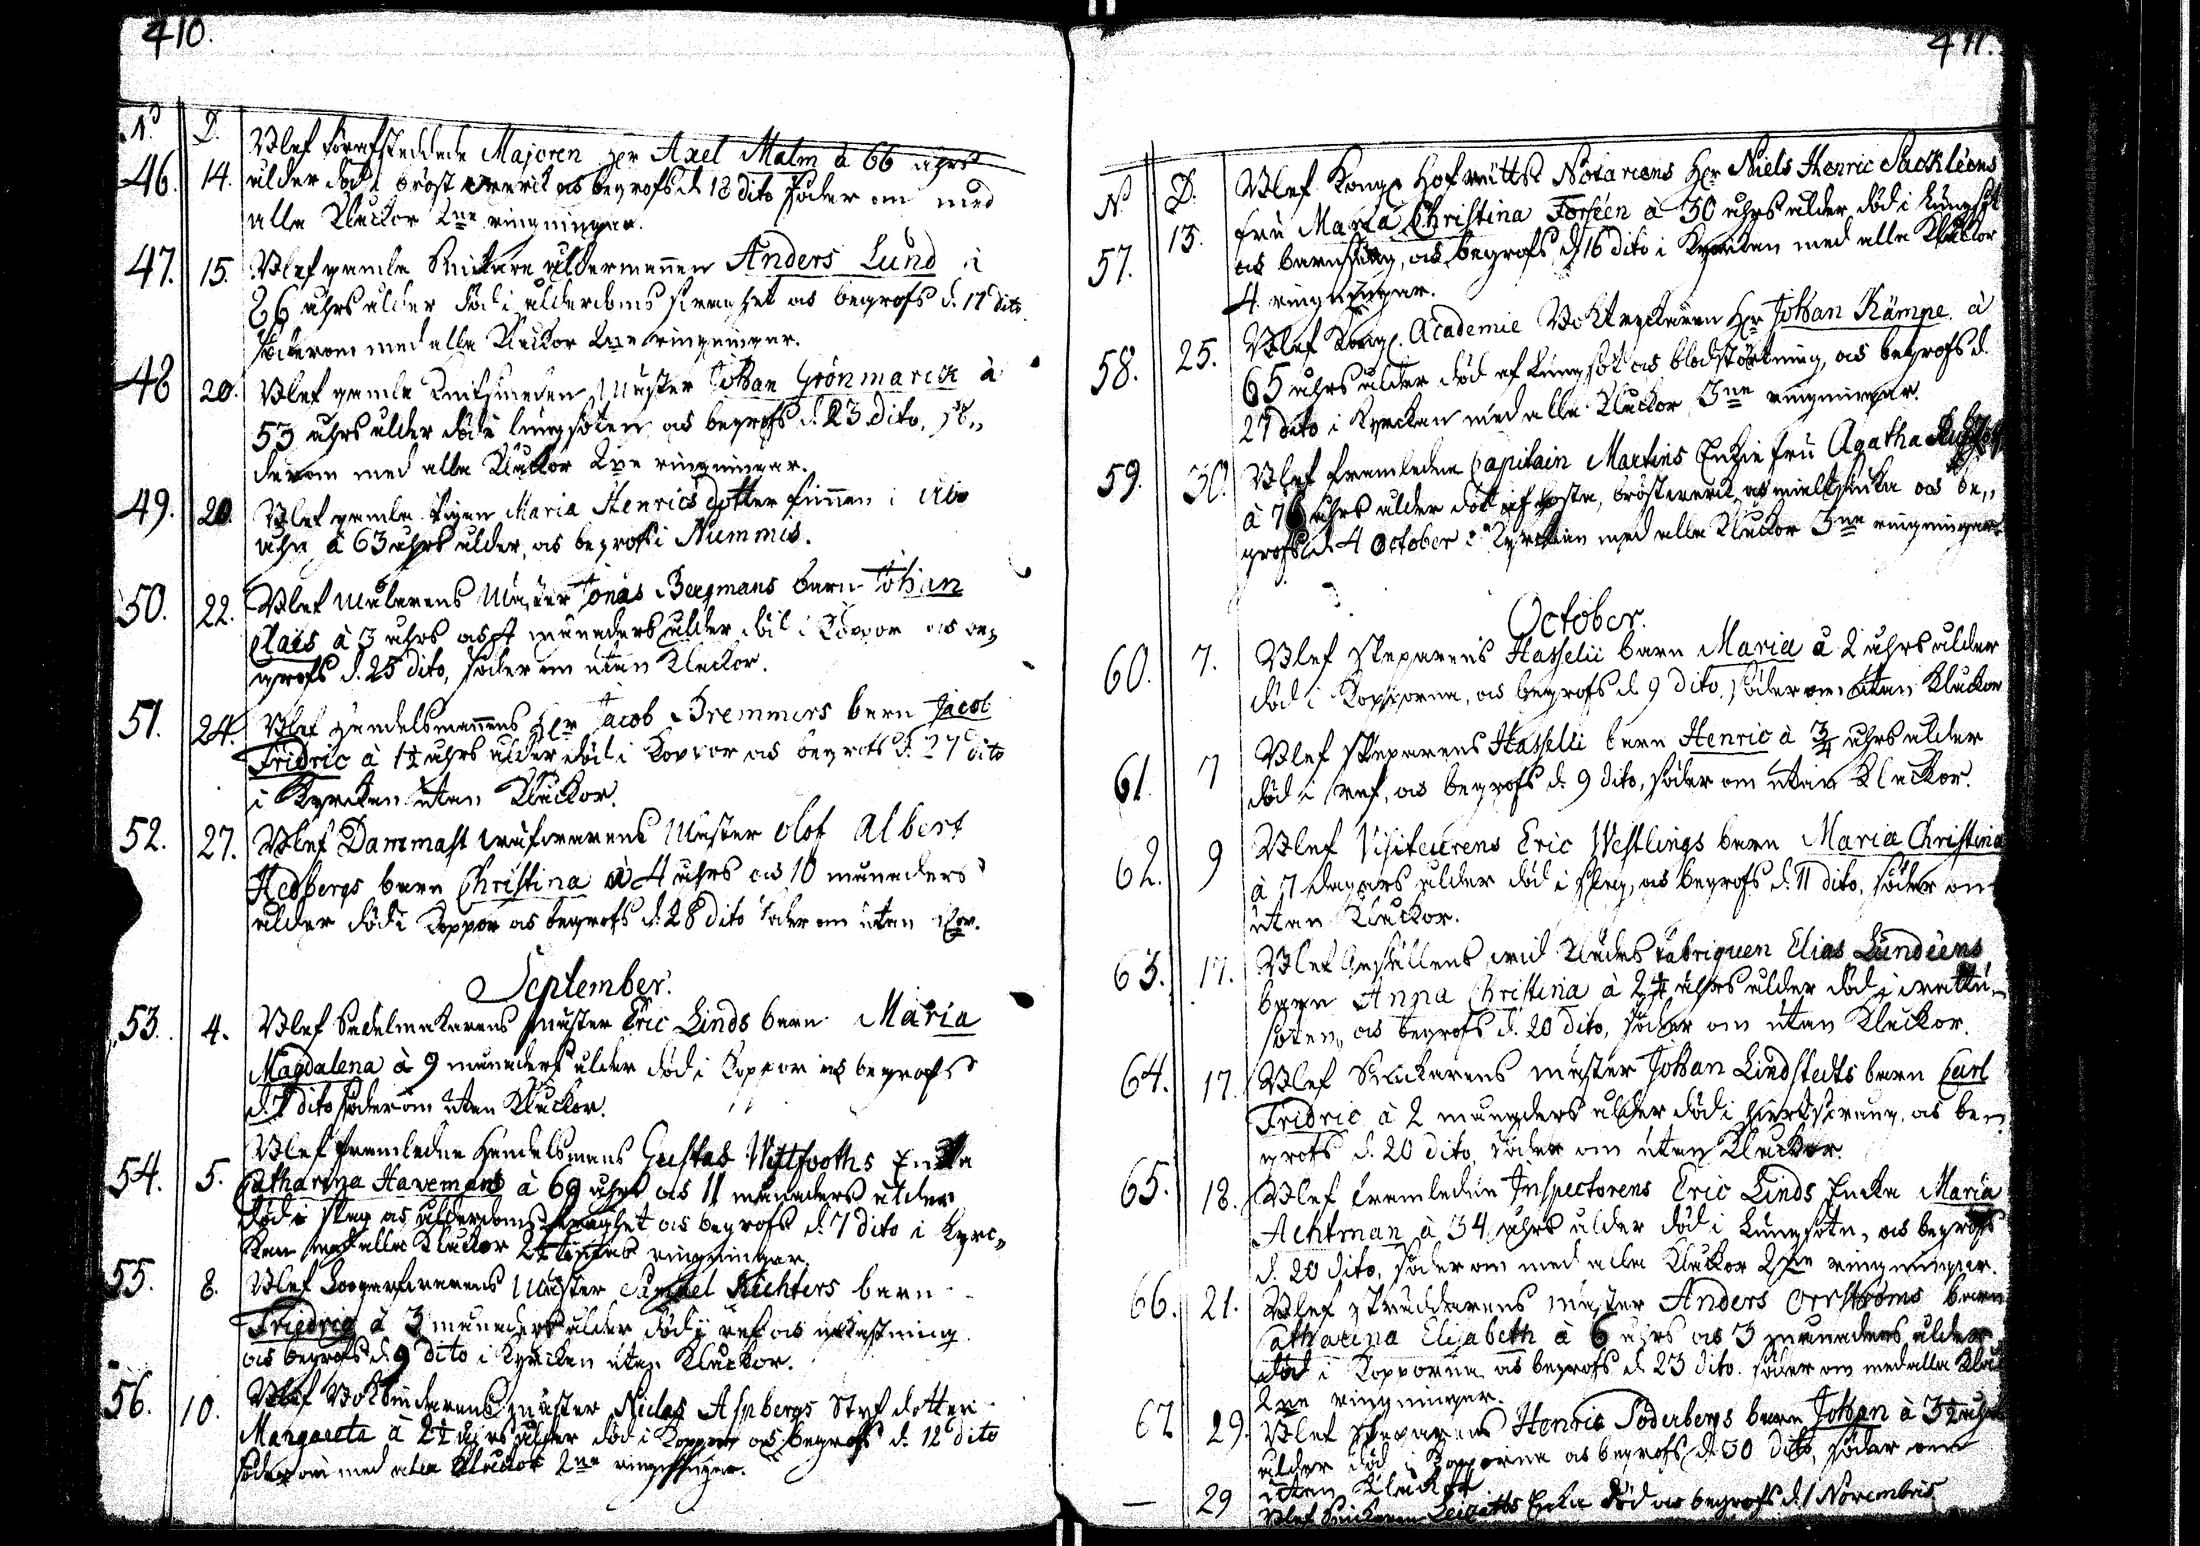 410.
No D.
46. 14. Blef förafskedade Majoren Herr Axel Malm à 66 åhrs
ålder död i bröstwerck och begrofs d. 18 dito söder om med
alla Kluckor 2ne ringningar.
47. 15. Blef gamle Snickare åldermannen Anders Lund i
86 åhrs ålder död i ålderdoms swaghet och begrofs d. 17 dito
söder om med alla Kluckor 2ne ringningar.
48 20. Blef gamle Knifsmeden Mäster Johan Grönmarck à
53 åhrs ålder död i lungsoten och begrofs d. 23 dito, sö„
der om med alla Kluckor 2ne ringningar.
49. 20. Blef gamle Pigan Maria Henrics dotter funnen i
åhn à 63 åhrs ålder, och begrofs i Nummis.
50. 22. Blef Målarens Mäster Jonas Bergmans barn Johan
Claës à 3 åhrs och månaders ålder död i Koppor och be„
grofs d. 25 dito, söder om utan Kluckor.
51. 24. Blef Handelsmannens Herr Jacob Bremmers barn Jacob
Fridric à 1½ åhrs ålder död i Koppor och begrofs d. 27 dito
i Kyrckan utan Kluckor.
52. 27. Blef Dammast wäfwarens Mäster Olof Albert
Hedbergs barn Christina à 4 åhrs och 10 månaders
ålder död i Koppor och begrofs d. 28 dito söder om utan
September.
53. 4. Blef Sadelmakarens mäster Eric Linds barn Maria
Magdalena à 9 månaders ålder död i Koppor och begrofs
d. 7 dito söder om utan Kluckor.
54. 5. Blef framledne Handelsmans Gustaf Wittfooths Encka
Catharina Havemans à 69 åhrs och 11 månaders ålder
död i slag och ålderdoms swaghet och begrofs d. 7 dito i Kyrc„
kan med alla Kluckor 2½ ringningar.
55. 8. Blef Mäster Samuel Richters barn
Friedric à 3 månaders ålder död i ref och
och begrofs d. 9 dito i Kyrckan utan Kluckor.
56. 10. Blef Bokbindarens mäster Niclas Aspbergs Styfdotter
Margareta à 2½ åhrs ålder död i Koppor och begrofs d. 12 dito
söder om med alla Kluckor 2ne ringningar.
411.
N. D.
57. 13. Blef Kongl. Hofrätts Notariens Herr Niels Henric Sackleens
fru Maria Christina Forseen à 30 åhrs ålder död i Lungsot
och barnsäng, och begrofs d. 16 dito i Kyrckan med alla Kluckor
4 ringningar.
58. 25. Blef Kongl. Academie Boktryckaren Herr Johan Kämpe à
65 åhrs ålder död af Lungsot och blodstörtning, och begrofs d.
27 dito i Kyrckan med alla Kluckor 3ne ringningar.
59. 30. Blef framledne Capitain Martins Enkie fru Agatha
à 76 åhrs ålder död af hosta, bröstwerck, och mieltsiuka och be„
grofs d. 4 October i Kyrckan med alla Kluckor 3ne ringningar.
October.
60. 7. Blef skeparens Hasselii barn Maria à 2 åhrs ålder
död i Kopporna, och begrofs d. 9 dito, söder om utan Kluckor
61. 7 Blef skeparens Hasselii barn Henric à ¾ åhrs ålder
död i ref, och begrofs d. 9 dito, söder om utan Kluckor.
62. 9 Blef Visiteurens Eric Westlings barn Maria Christina
à 7 dagars ålder död i slag, och begrofs d. 11 dito, söder om
utan Kluckor.
63. 17. Blef Gesällens wid Klädes fabriquen Elias Lundeens
barn Anna Christina à 2½ åhrs ålder död i wattu„
soten, och begrofs d. 20 dito, söder om utan Kluckor.
64. 17. Blef Snickarens mäster Johan Lindstedts barn Carl
Fridric à 2 månaders ålder död i hiertsprång och be„
grofs d. 20 dito, söder om utan Kluckor.
65. 18. Blef framledne Inspectorens Eric Linds Encka Maria
Achtman à 34 åhrs ålder död i Lungsoten, och begrofs
d. 20 dito, söder om med alla Kluckor 2ne ringningar.
66. 21. Blef skräddarens mäster Anders Orrströms barn
Catharina Elisabeth à 6 åhrs och 3 månaders ålder
död i Kopporna och begrofs d. 23 dito. söder om med alla Kluc
2ne ringningar.
67 29. Blef skeparens Henric Söderbergs barn Johan à 3½ åhrs
ålder död i Kopporna och begrofs d. 30 dito, söder om
utan Kluckor
— 29 Blef Snickaren Encka död och begrofs d. 1 Novembris